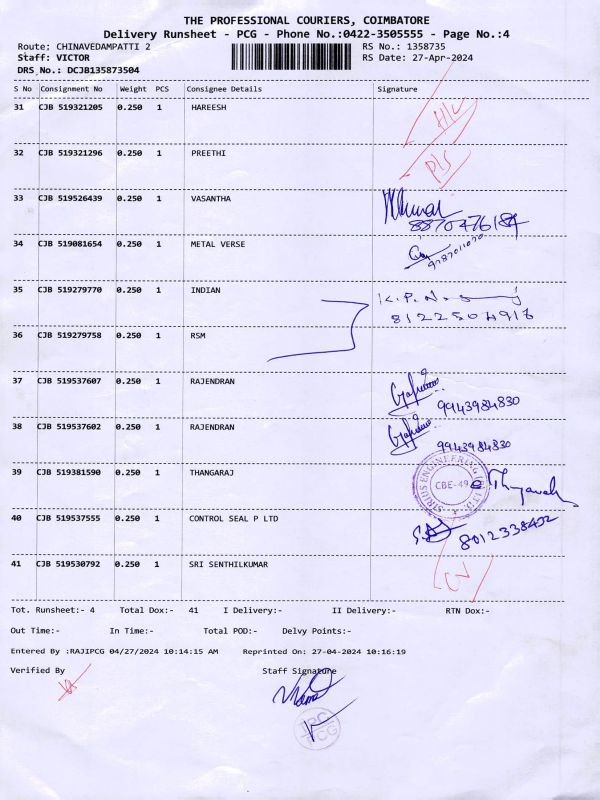 THE PROFESSIONAL COURIERS, COIMBATORE
Delivery Runsheet - PCG - Phone No.:0422-3505555 - Page No.:4
Route: CHINAVEDAMPATTI 2 RS No.: 1358735
Staff: VICTOR RS Date: 27-Apr-2024
DRS No.: DCJB135873504
S No Consignment No Weight PCS Consignee Details Signature
31 CJB 519321205 0.250 1 HAREESH
32 CJB 519321296 0.250 1 PREETHI
33 CJB 519526439 0.250 1 VASANTHA
34 CJB 519081654 0.250 1 METAL VERSE
35 CJB 519279770 0.250 1 INDIAN K.P.
36 CJB 519279758 0.250 1 RSM
37 CJB 519537607 0.250 1 RAJENDRAN 9943984830
38 CJB 519537602 0.250 1 RAJENDRAN 9943984830
39 CJB 519381590 0.250 1 THANGARAJ CBE-49
40 CJB 519537555 0.250 1 CONTROL SEAL P LTD
41 CJB 519530792 0.250 1 SRI SENTHILKUMAR
Tot. Runsheet:- 4 Total Dox:- 41 I Delivery:- II Delivery:- RTN Dox:-
Out Time:- In Time:- Total POD:- Delvy Points:-
Entered By :RAJIPCG 04/27/2024 10:14:15 AM Reprinted On: 27-04-2024 10:16:19
Verified By Staff Signature